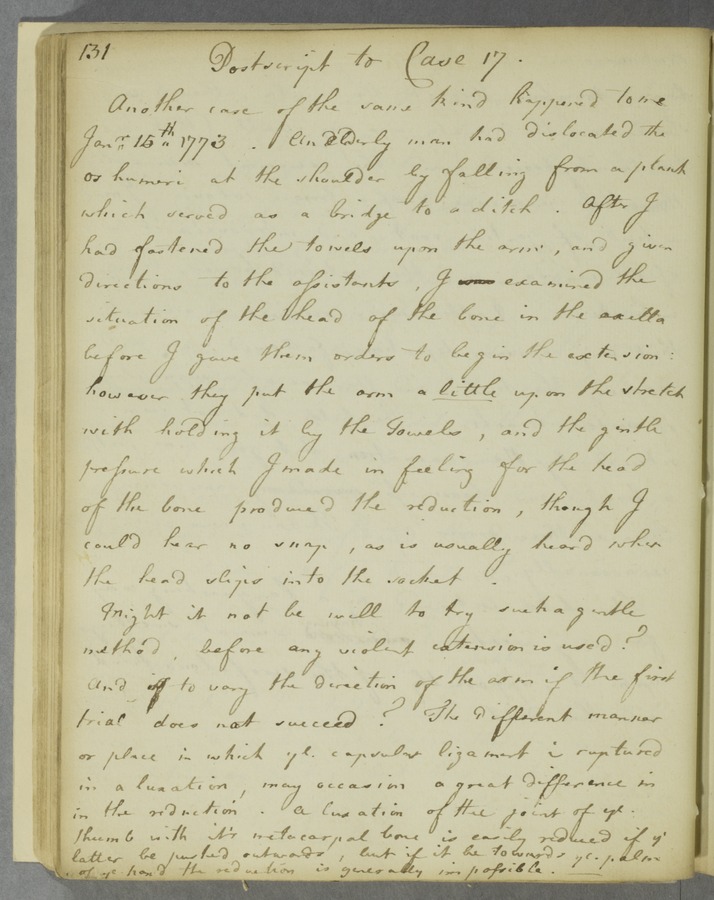 131
Postscript to Case 17.
Another case of the same kind happened to me
Janry. 15th 1773. An Elderly man had dislocated the
os humeri at the shoulder by falling from a plank
which served as a bridge to a ditch. After I
had fastened the towels upon the arm, and given
directions to the assistants, I examined the
situation of the head of the bone in the axilla
before I gave them orders to begin the extension:
however they put the arm a little upon the stretch
with holding it by the Towels, and the gentle
pressure which I made in feeling for the head
of the bone produced the reduction, though I
could hear no snap, as is usually heard when
the head slips into the socket.
Might it not be well to try such a gentle
method, before any violent extension is used?
And to vary the direction of the arm if the first
trial does not succeed? The different manner
or place in which ye. capsular ligament is ruptured
in a luxation, may occasion a great difference in
in the reduction. A luxation of the joint of ye.
thumb with it's metacarpal bone is easily reduced if ye
latter be pushed outwards, but if it be towards ye. palm
of ye hand the reduction is generally impossible.